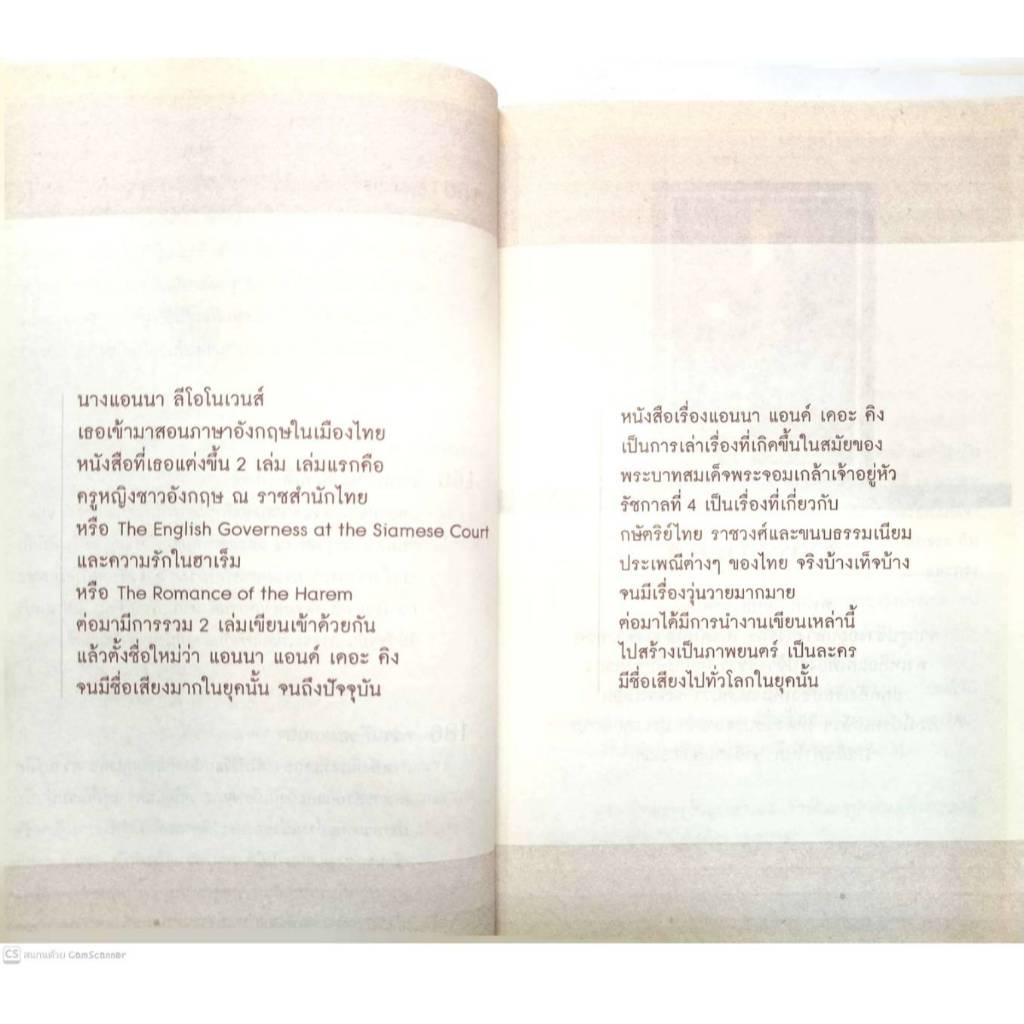 นางแอนนา ลีโอโนเวนส์
เธอเข้ามาสอนภาษาอังกฤษในเมืองไทย
หนังสือที่เธอแต่งขึ้น 2 เล่ม เล่มแรกคือ
ครูหญิงชาวอังกฤษ ณ ราชสำนักไทย
หรือ The English Governess at the Siamese Court
และความรักในฮาเร็ม
หรือ The Romance of the Harem
ต่อมามีการรวม 2 เล่มเขียนเข้าด้วยกัน
แล้วตั้งชื่อใหม่ว่า แอนนา แอนด์ เดอะ คิง
จนมีชื่อเสียงมากในยุคนั้น จนถึงปัจจุบัน
หนังสือเรื่องแอนนา แอนด์ เดอะ คิง
เป็นการเล่าเรื่องที่เกิดขึ้นในสมัยของ
พระบาทสมเด็จพระจอมเกล้าเจ้าอยู่หัว
รัชกาลที่ 4 เป็นเรื่องที่เกี่ยวกับ
กษัตริย์ไทย ราชวงศ์และขนบธรรมเนียม
ประเพณีต่างๆ ของไทย จริงบ้างเท็จบ้าง
จนมีเรื่องวุ่นวายมากมาย
ต่อมาได้มีการนำงานเขียนเหล่านี้
ไปสร้างเป็นภาพยนตร์ เป็นละคร
มีชื่อเสียงไปทั่วโลกในยุคนั้น
CS สแกนด้วย CamScanner